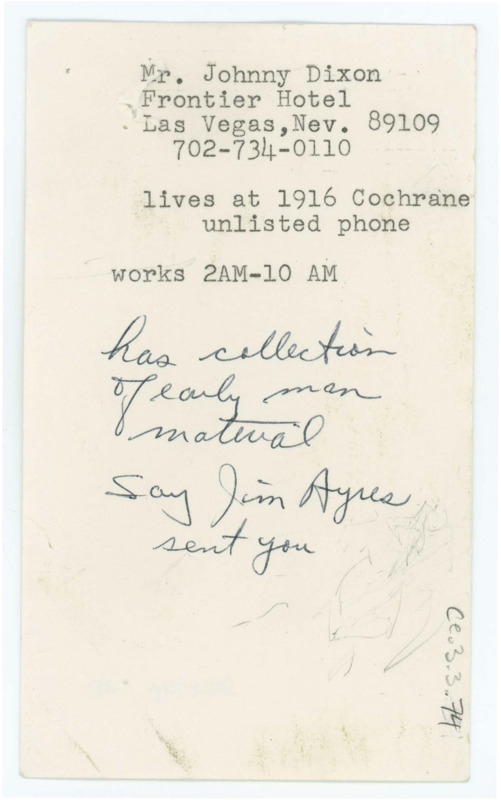 Mr. Johnny Dixon
Frontier Hotel
Las Vegas,Nev. 89109
702-734-0110
lives at 1916 Cochrane
unlisted phone
works 2AM-10 AM
has collection
of early man
material
Say Jim Ayres
sent you
Ce.3.3.74